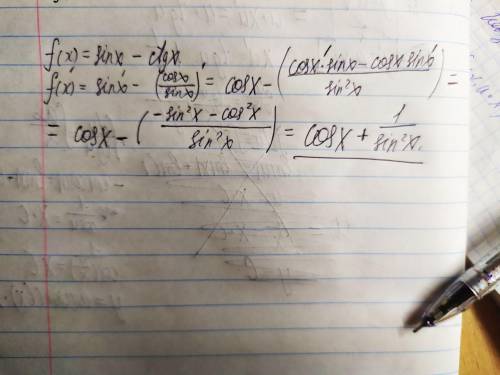 f(x) = sinx - ctgx.
f(x)' = sinx' - (cosx/sinx)' = cosx - (cosx'·sinx - cosx sinx'/sin²x) =
= cosx - (-sin²x - cos²x/sin²x) = cosx + 1/sin²x.